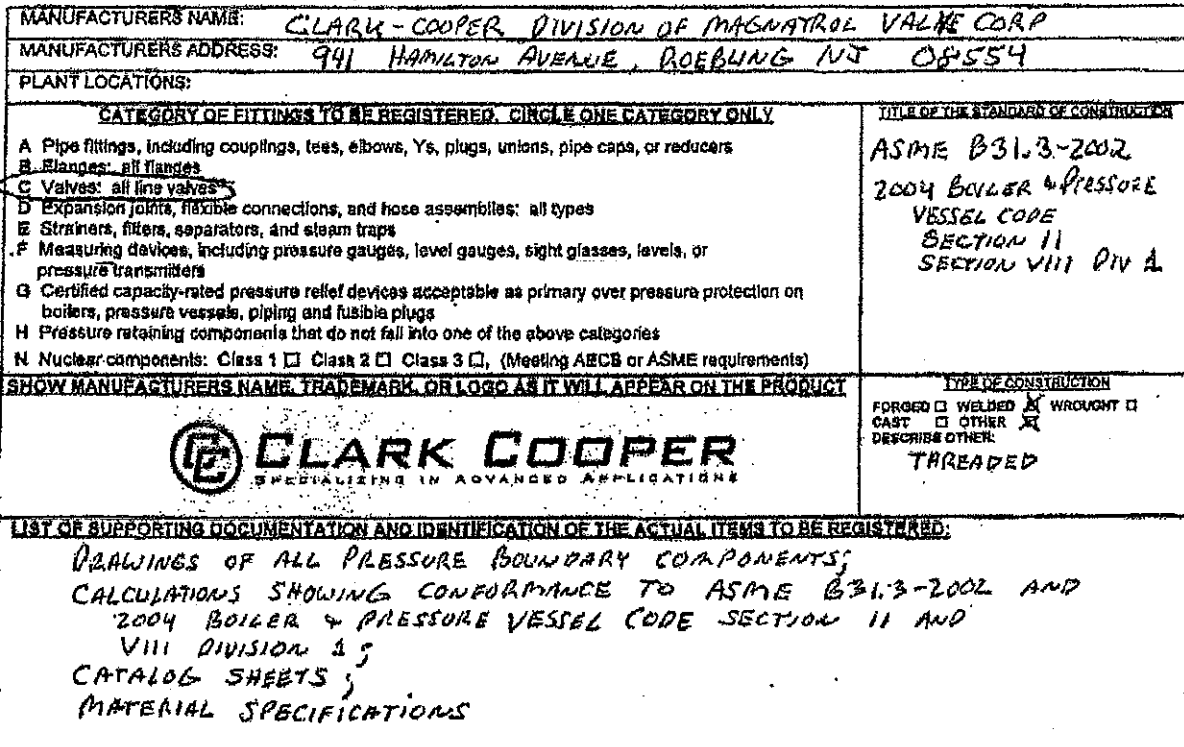 MANUFACTURERS NAME: CLARK-COOPER DIVISION OF MAGNATROL VALVE CORP
MANUFACTURERS ADDRESS: 941 HAMILTON AVENUE, ROEBLING NJ 08554
PLANT LOCATIONS:
CATEGORY OF FITTINGS TO BE REGISTERED. CIRCLE ONE CATEGORY ONLY
A Pipe fittings, including couplings, tees, elbows, Ys, plugs, unions, pipe caps, or reducers
B Flanges: all flanges
C Valves: all line valves
D Expansion joints, flexible connections, and hose assemblies: all types
E Strainers, filters, separators, and steam traps
F Measuring devices, including pressure gauges, level gauges, sight glasses, levels, or
pressure transmitters
G Certified capacity-rated pressure relief devices acceptable as primary over pressure protection on
boilers, pressure vessels, piping and fusible plugs
H Pressure retaining components that do not fall into one of the above categories
N Nuclear components: Class 1 ☐ Class 2 ☐ Class 3 ☐, (Meeting AECB or ASME requirements)
TITLE OF THE STANDARD OF CONSTRUCTION
ASME B31.3-2002
2004 BOILER & PRESSURE
VESSEL CODE
SECTION II
SECTION VIII DIV 1
SHOW MANUFACTURERS NAME, TRADEMARK, OR LOGO AS IT WILL APPEAR ON THE PRODUCT
CC CLARK COOPER
SPECIALIZING IN ADVANCED APPLICATIONS
TYPE OF CONSTRUCTION
FORGED ☐ WELDED ☒ WROUGHT ☐
CAST ☐ OTHER ☒
DESCRIBE OTHER:
THREADED
LIST OF SUPPORTING DOCUMENTATION AND IDENTIFICATION OF THE ACTUAL ITEMS TO BE REGISTERED:
DRAWINGS OF ALL PRESSURE BOUNDARY COMPONENTS;
CALCULATIONS SHOWING CONFORMANCE TO ASME B31.3-2002 AND
2004 BOILER & PRESSURE VESSEL CODE SECTION II AND
VIII DIVISION 1;
CATALOG SHEETS;
MATERIAL SPECIFICATIONS